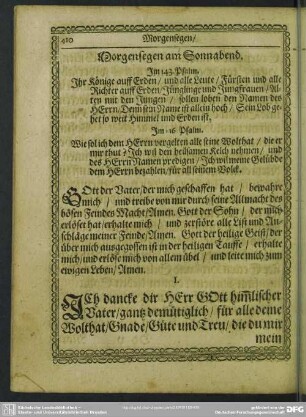 410 Morgensegen/
Morgensegen am Sonnabend.
Im 148. Psalm.
Ihr Könige auff Erden/ und alle Leute/ Fürsten und alle
Richter auff Erden/ Jünglinge und Jungfrauen/ Al-
ten mit den Jungen/ sollen loben den Namen des
HErrn. Denn sein Name ist allein hoch/ Sein Lob ge-
het so weit Himmel und Erden ist.
Im 116 Psalm.
Wie sol ich dem HErrn vergelten alle seine Wolthat/ die er
mir thut? Ich wil den heilsamen Kelch nehmen/ und
des HErrn Namen predigen/ Ich wil meine Gelübde
dem HErrn bezahlen/ für all seinem Volck.
GOtt der Vater/ der mich geschaffen hat/ bewahre
mich/ und treibe von mir durch seine Allmacht des
bösen Feindes Macht/ Amen. Gott der Sohn/ der mich
erlöset hat/ erhalte mich/ und zerstöre alle List und An-
schläge meiner Feinde Amen. Gott der heilige Geist/ der
über mich ausgegossen ist in der heiligen Tauffe/ erhalte
mich/ und erlöse mich von allem übel/ und leite mich zum
ewigen Leben/ Amen.
I.
ICh dancke dir HErr GOtt him̃lischer
Vater/ gantz demütiglich/ für alle deine
Wolthat/ Gnade/ Güte und Treu/ die du mir
mein